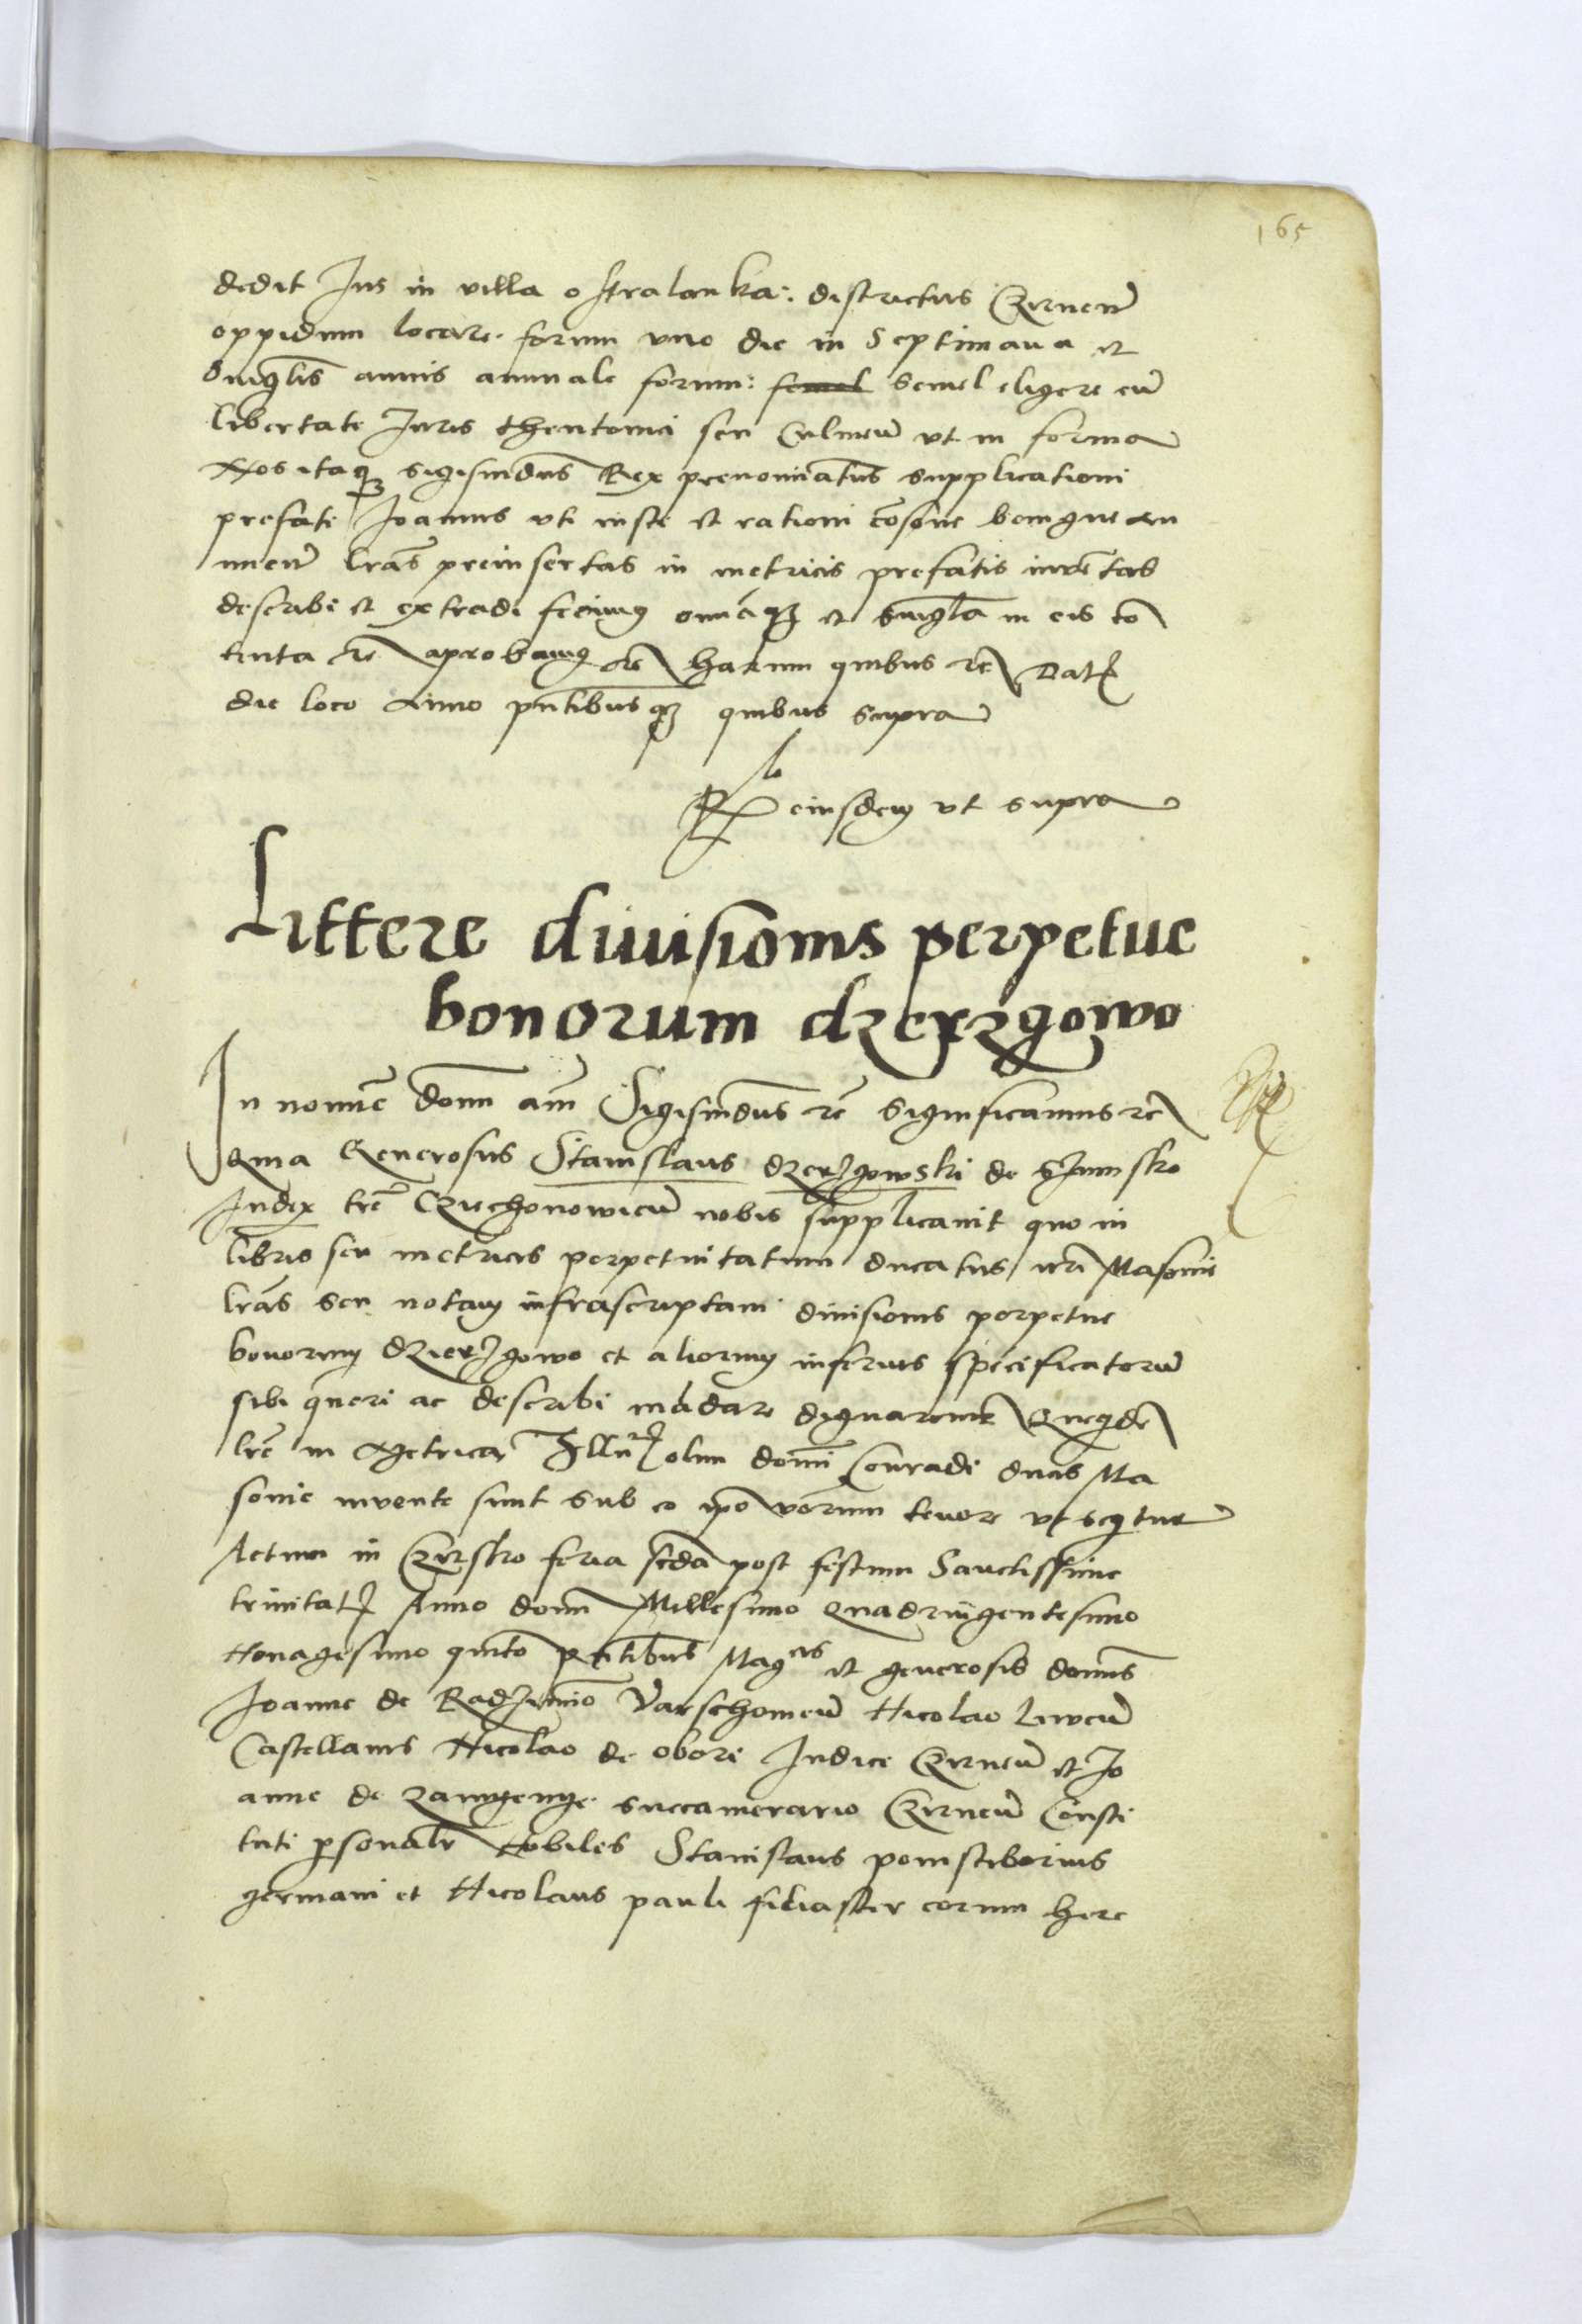 165
dedit Jus in villa ostralanka: districtus Czirnen̄
oppidum locare. forum vno die in Septimana et
Singlis̄ annis annuale forum: semel semel eligere cū
libertate Juris theutonici seu Culmen̄ vt in forma
Nos itaqꝫ sigismdus̄ Rex prenominatus̄ supplicationi
prefate Joannis vti iuste et rationi cōsone benigne an
nuen̄ lrās preinsertas in metricis prefatis inuētas
describi et extradi fecimus omīaqꝫ et singla in eis cō
tenta rē aprobamus rē harum quibus rē Datꝭ
die loco Anno pn̄tibusqꝫ quibus supra
Rlo eiusdem vt supra
Littere diuisiōnis perpetue
bonorum dzerzgowo
In nomīe domī am̄ Sigismdus̄ rē significamus rē
Quia Generosus Stanislaus dzerzgowski de
Judex trē Czechonowien̄ nobis supplicauit quo in
libris seu metricis perpetuitatum ducatus nrī Masouie
lrās seu notam infrascriptam diuisionis perpetue
bonorum dzierzgowo et aliorum inferius specificatorū
sibi queri ac describi mādare dignaremur Quequidē
lrē in Metrica Illuꝭ olim domī Conradi ducis Ma
souie inuente sunt sub eo ipo verorum tenore vt sequitur
Actum in Czirsko feria secdā post festum Sanctissime
trinitatꝭ Anno domī Millesimo quadringentesimo
Nonagesimo quīto pn̄tibus Magcis et generosis domīs
Joanne de Radzimīo Varschouien̄ Nicolao Liwen̄
Castellanis Nicolao de obori Judice Czirnen̄ et Jo
anne de succamerario Czirnen̄ Consti
tuti psonalr̄ Nobiles Stanislaus pomsciborius
germani et Nicolaus pauli filiaster eorum here